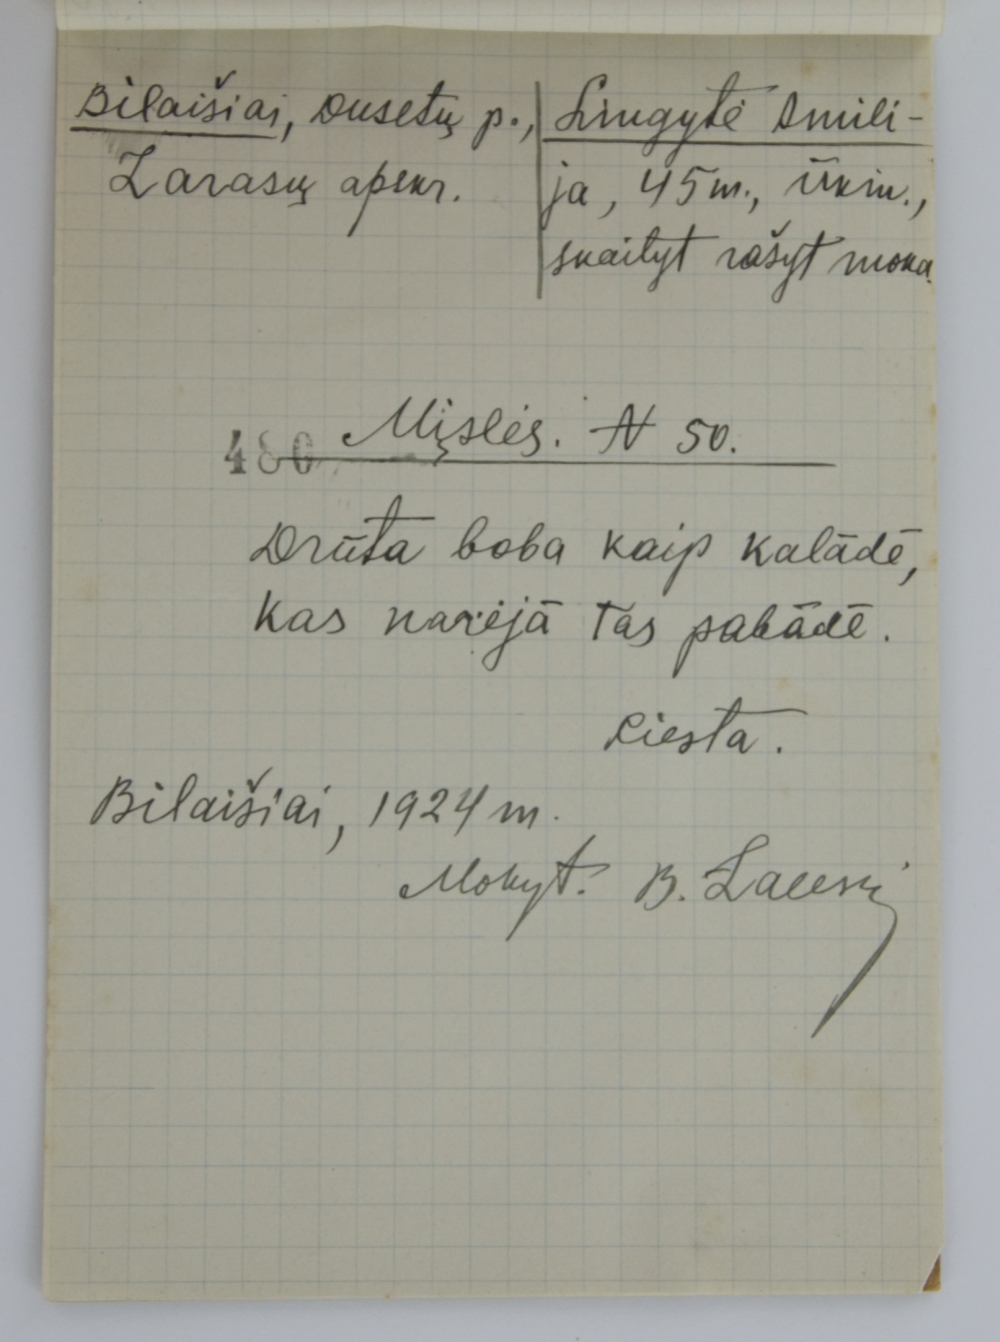 Bilaišiai, Dusetų p.,
Zarasų apskr.
Lingytė Amili-
ja, 45 m., Ūkin.,
skaityt rašyt moka.
480
Mįslės. N 50.
Drūta boba kaip kalādē,
kas narėjā tas pabādē.
Ciesta.
Bilaišiai, 1924 m.
Mokyt. B.